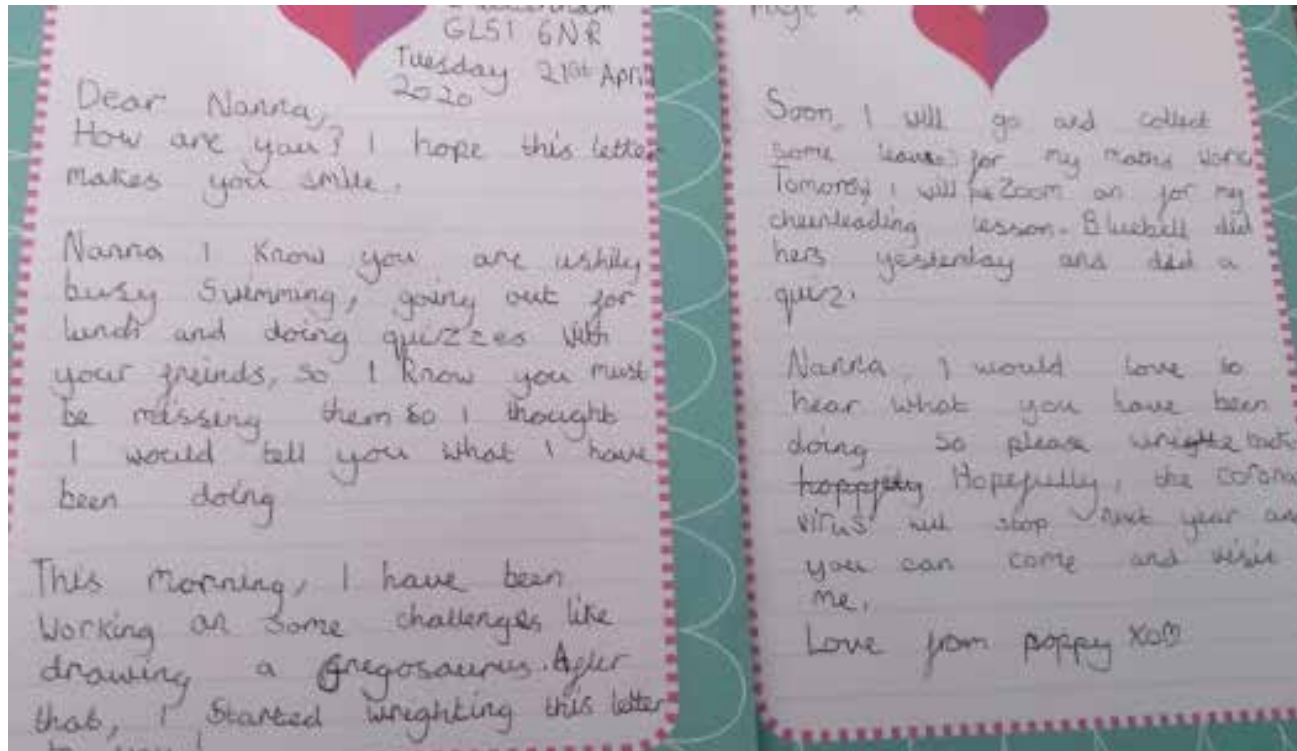 GL51 6NR
Tuesday 21st April
2020
Dear Nanna,
How are you? I hope this letter
makes you smile.
Nanna I know you are ushily
busy swimming, going out for
lunch and doing quizzes with
your freinds, so I know you must
be missing them so I thought
I would tell you what I have
been doing
This morning, I have been
working on some challenges like
drawing a Gregosaurus. After
that, I started wrighting this letter
to you!
Page 2
Soon, I will go and collect
some leaves for my maths work
I will be Zoom on for my
cheerleading lesson. Bluebell did
hers yesterday and did a
quiz.
Nanna, I would love to
hear what you have been
doing so please back
Hopefully, the corona
virus will stop next year and
you can come and visit
me,
Love from poppy xo♡